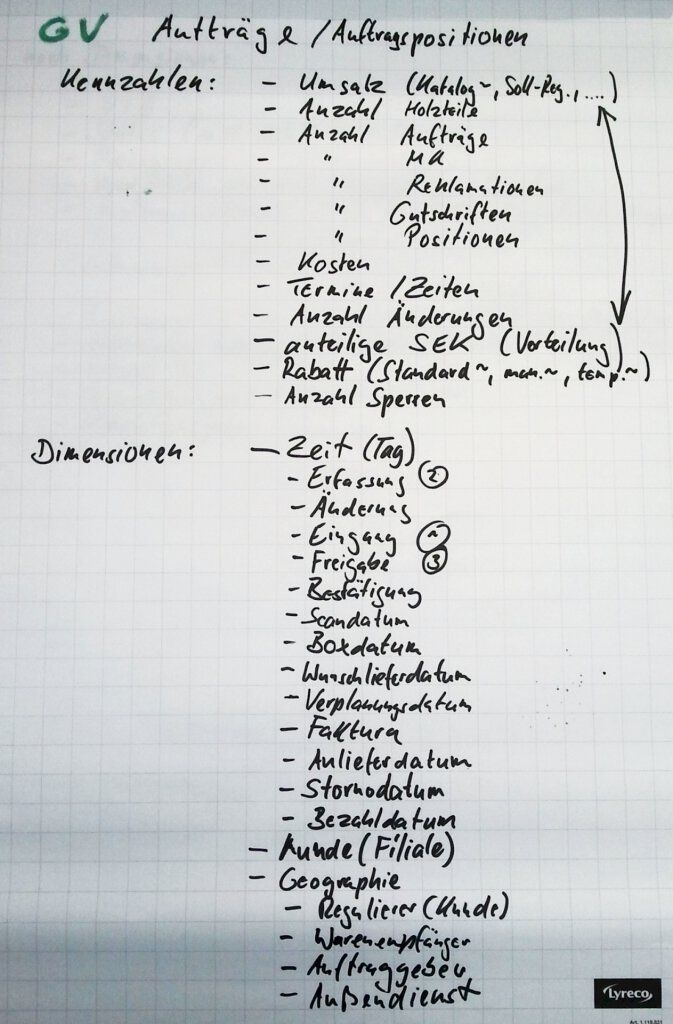 GV Aufträge / Auftragspositionen
Kennzahlen: - Umsatz (Katalog~, Soll-Reg., ....)
- Anzahl Holzteile
- Anzahl Aufträge
- " MA
- " Reklamationen
- " Gutschriften
- " Positionen
- Kosten
- Termine / Zeiten
- Anzahl Änderungen
- anteilige SEK (Verteilung)
- Rabatt (Standard~, man.~, temp.~)
- Anzahl Sperren
Dimensionen: - Zeit (Tag)
- Erfassung ②
- Änderung
- Eingang
- Freigabe ③
- Bestätigung
- Scandatum
- Boxdatum
- Wunschlieferdatum
- Verplanungsdatum
- Faktura
- Anlieferdatum
- Stornodatum
- Bezahldatum
- Kunde (Filiale)
- Geographie
- Regulierer (Kunde)
- Warenempfänger
- Auftraggeber
- Außendienst
Lyreco